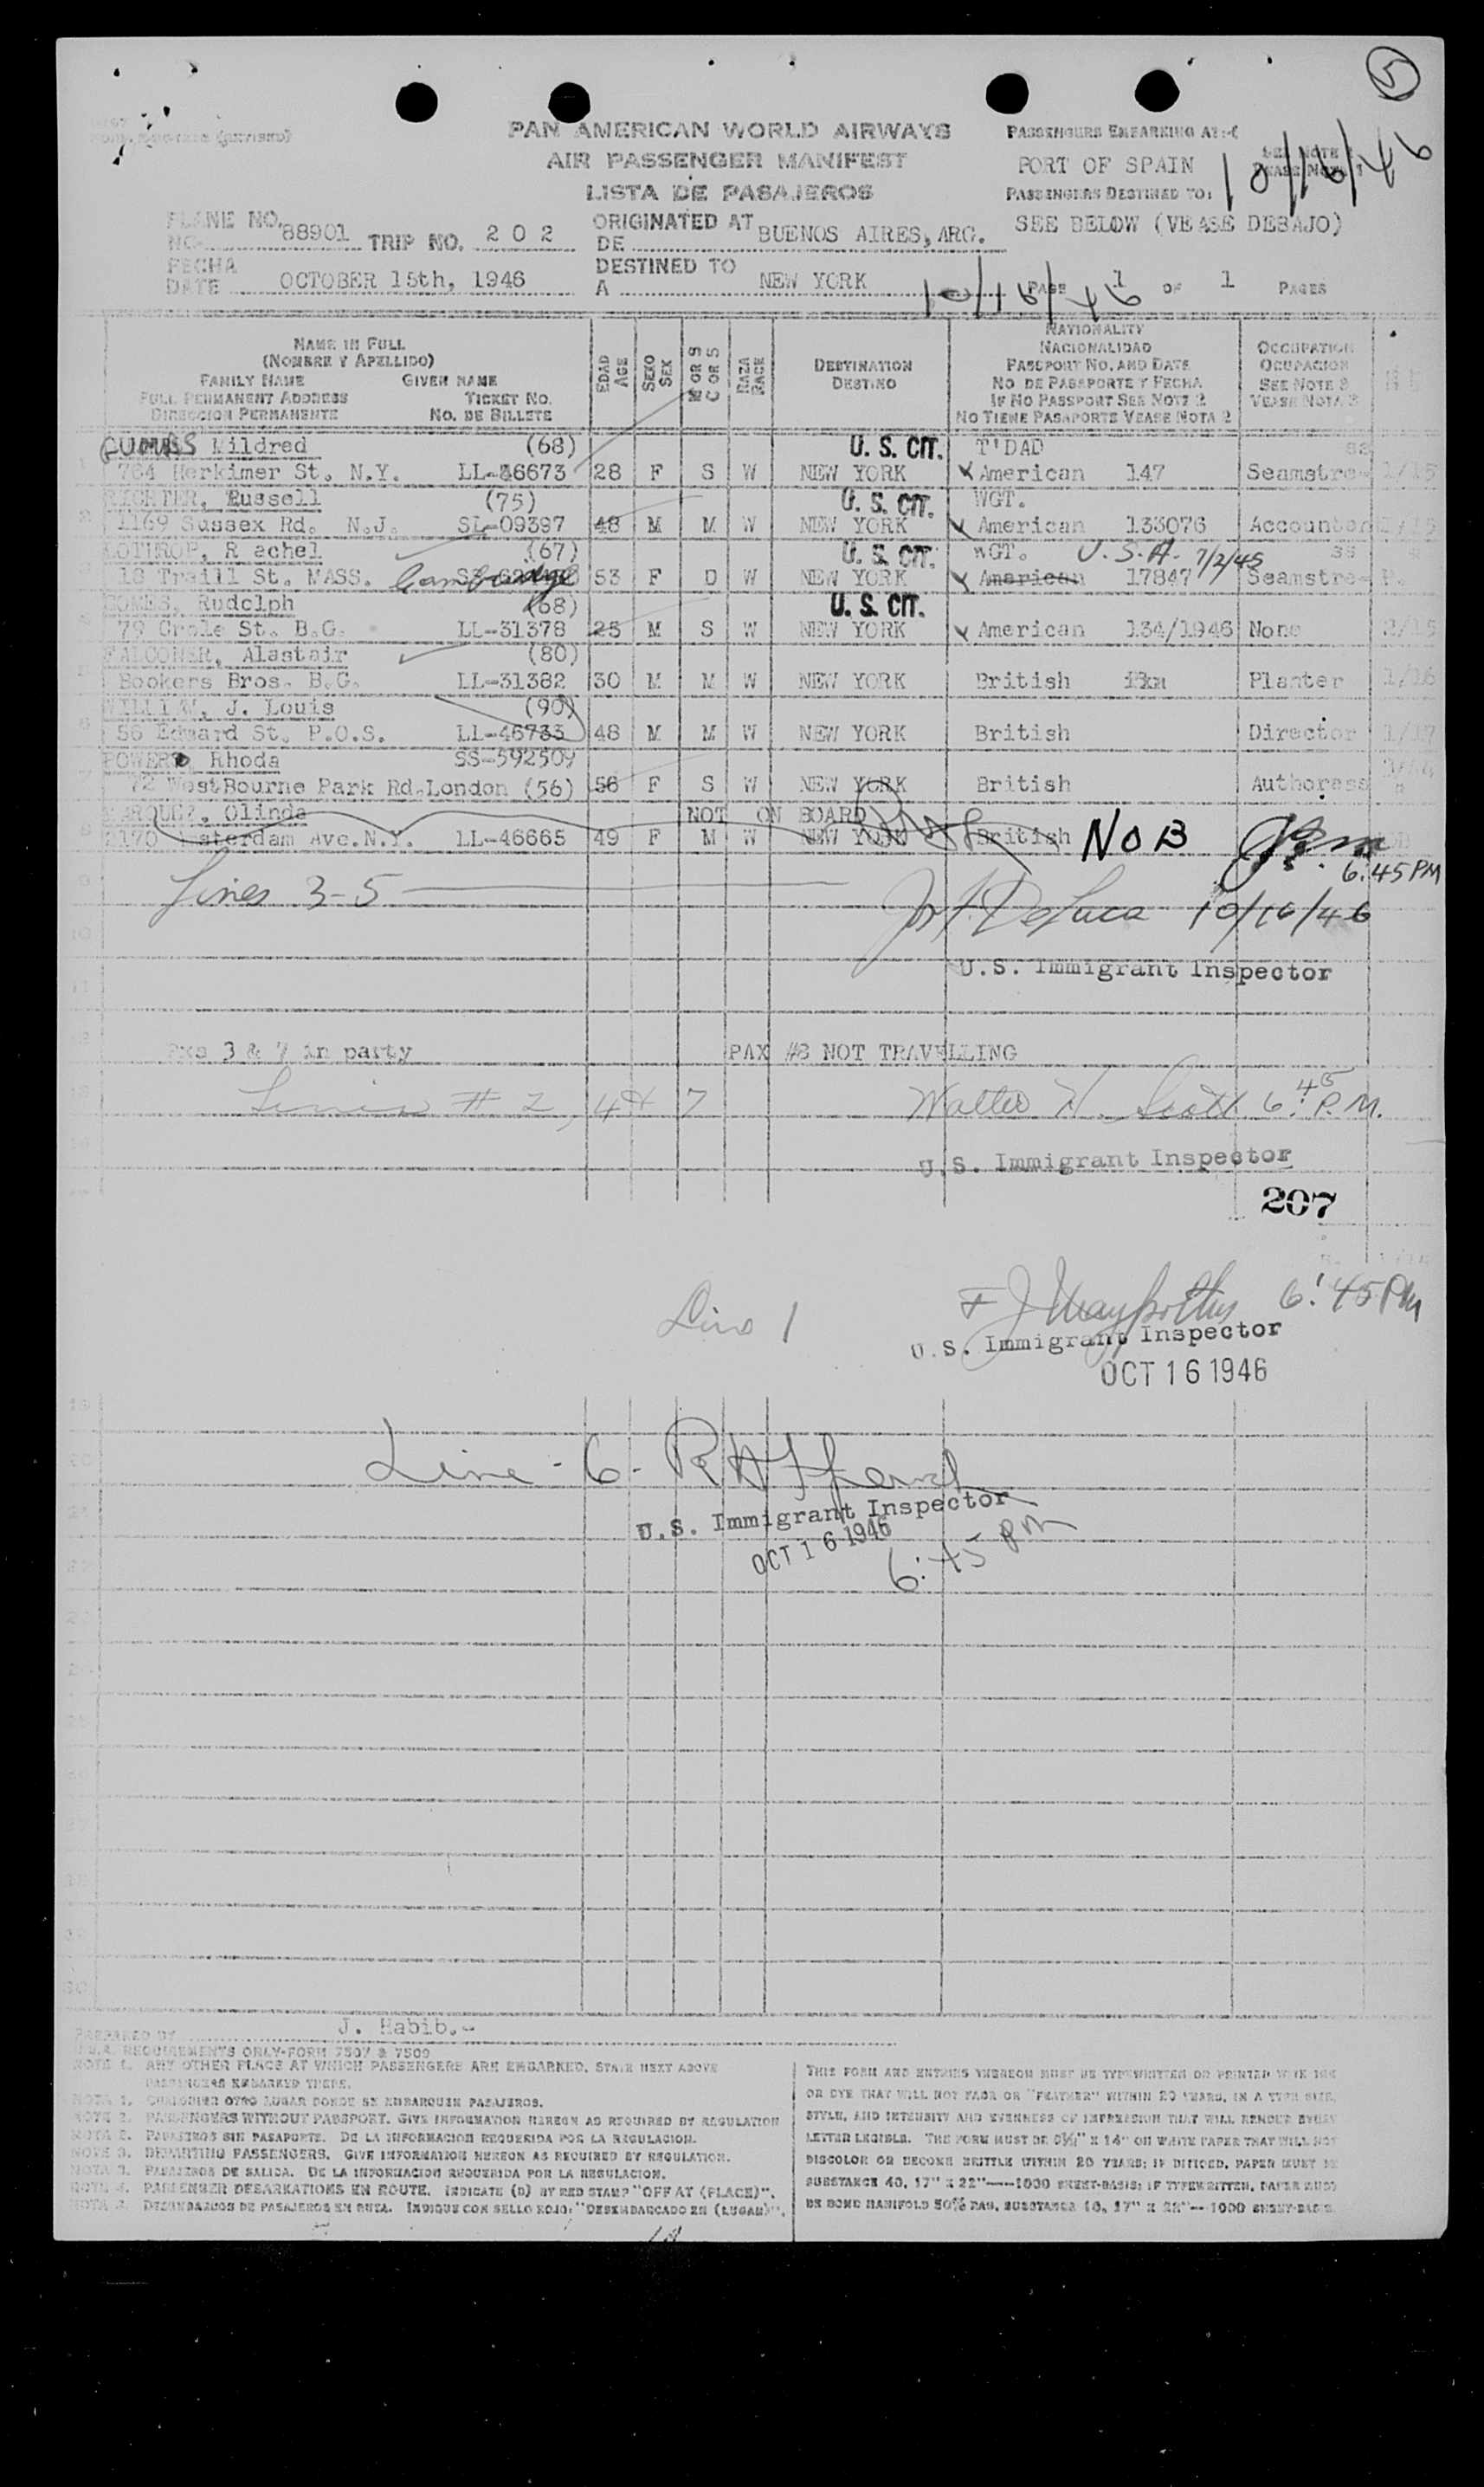 5
PAN AMERICAN WORLD AIRWAYS
AIR PASSENGER MANIFEST
LISTA DE PASAJEROS
PASSENGERS EMBARKING AT:-
PORT OF SPAIN
PASSENGERS DESTINED TO:
SEE BELOW (VEASE DEBAJO)
10/16/46
PLANE NO. 88901 TRIP NO. 2 0 2
ORIGINATED AT
DE BUENOS AIRES, ARG.
FECHA
DATE OCTOBER 15th, 1946
DESTINED TO
A NEW YORK
10/16/46
PAGE 1 OF 1 PAGES
NAME IN FULL
(NOMBRE Y APELLIDO)
FAMILY NAME GIVEN NAME
FULL PERMANENT ADDRESS TICKET NO.
DIRECCION PERMANENTE NO. DE BILLETE
EDAD AGE
SEXO SEX
M OR S C OR S
RAZA RACE
DESTINATION
DESTINO
NATIONALITY
NACIONALIDAD
PASSPORT NO. AND DATE
NO DE PASAPORTE Y FECHA
IF NO PASSPORT SEE NOTE 2
NO TIENE PASAPORTE VEASE NOTA 2
OCCUPATION
OCUPACION
SEE NOTE 3
VEASE NOTA 3
Mildred (68) U. S. CIT. T'DAD
764 Herkimer St. N.Y. LL-46673 28 F S W NEW YORK American 147 Seamstre-
RICHTER, Russell (75) U. S. CIT. WGT.
2 1169 Sussex Rd. N.J. SL-09397 48 M M W NEW YORK American 133076 Accountan
LOTHROP, R achel (67) U. S. CIT. WGT. U.S.A. 7/2/45
10 Traill St. MASS. Cambridge 53 F D W NEW YORK American 17847 Seamstre-
GOMES, Rudolph (68) U. S. CIT.
79 St. B.G. LL-31378 25 M S W NEW YORK American 134/1946 None 2/15
FALCONER, Alastair (80)
Bookers Bros. B.G. LL-31382 30 M M W NEW YORK British Planter 1/16
J. Louis (90)
6 56 Edward St. P.O.S. LL-46733 48 M M W NEW YORK British Director 1/17
POWER, Rhoda SS-592509
72 WestBourne Park Rd.London (56) 56 F S W NEW YORK British Authoress
MARQUEZ, Olinda NOT ON BOARD
2170 Amsterdam Ave.N.Y. LL-46665 49 F M W NEW YORK British NOB
6:45 PM
Lines 3-5 10/16/46
U.S. Immigrant Inspector
Pxs 3 & 7 in party PAX #8 NOT TRAVELLING
Lines # 2, 4 & 7 Walter H. Scott 6:45 P.M.
U.S. Immigrant Inspector
207
Line 1 6:45 PM
U.S. Immigrant Inspector
OCT 16 1946
Line - 6 -
U.S. Immigrant Inspector
OCT 16 1946
6:45 PM
PREPARED BY J. Habib.-
U.S.A. REQUIREMENTS ONLY-FORM 7507 & 7509
NOTE 1. ANY OTHER PLACE AT WHICH PASSENGERS ARE EMBARKED, STATE NEXT ABOVE
PASSENGERS EMBARKED THERE.
NOTA 1. CUALQUIER OTRO LUGAR DONDE SE EMBARQUEN PASAJEROS.
NOTE 2. PASSENGERS WITHOUT PASSPORT. GIVE INFORMATION HEREON AS REQUIRED BY REGULATION
NOTA 2. PASAJEROS SIN PASAPORTE. DE LA INFORMACION REQUERIDA POR LA REGULACION.
NOTE 3. DEPARTING PASSENGERS. GIVE INFORMATION HEREON AS REQUIRED BY REGULATION.
NOTA 3. PASAJEROS DE SALIDA. DE LA INFORMACION REQUERIDA POR LA REGULACION.
NOTE 4. PASSENGER DEBARKATIONS EN ROUTE. INDICATE (D) BY RED STAMP "OFF AT (PLACE)".
NOTA 4. DESEMBARCOS DE PASAJEROS EN RUTA. INDIQUE CON SELLO ROJO: "DESEMBARCADO EN (LUGAR)".
THIS FORM AND ENTRIES THEREON MUST BE TYPEWRITTEN OR PRINTED WITH INK
OR DYE THAT WILL NOT FADE OR "FEATHER" WITHIN 20 YEARS, IN A TYPE SIZE,
STYLE, AND INTENSITY AND EVENNESS OF IMPRESSION THAT WILL RENDER EVERY
LETTER LEGIBLE. THE FORM MUST BE 8½" X 14" ON WHITE PAPER THAT WILL NOT
DISCOLOR OR BECOME BRITTLE WITHIN 20 YEARS; IF DITTOED, PAPER MUST BE
SUBSTANCE 40, 17" X 22"----1000 SHEET-BASIS; IF TYPEWRITTEN, PAPER MUST
BE BOND MANIFOLD 50% RAG, SUBSTANCE 16, 17" X 22"--1000 SHEET-BASIS.